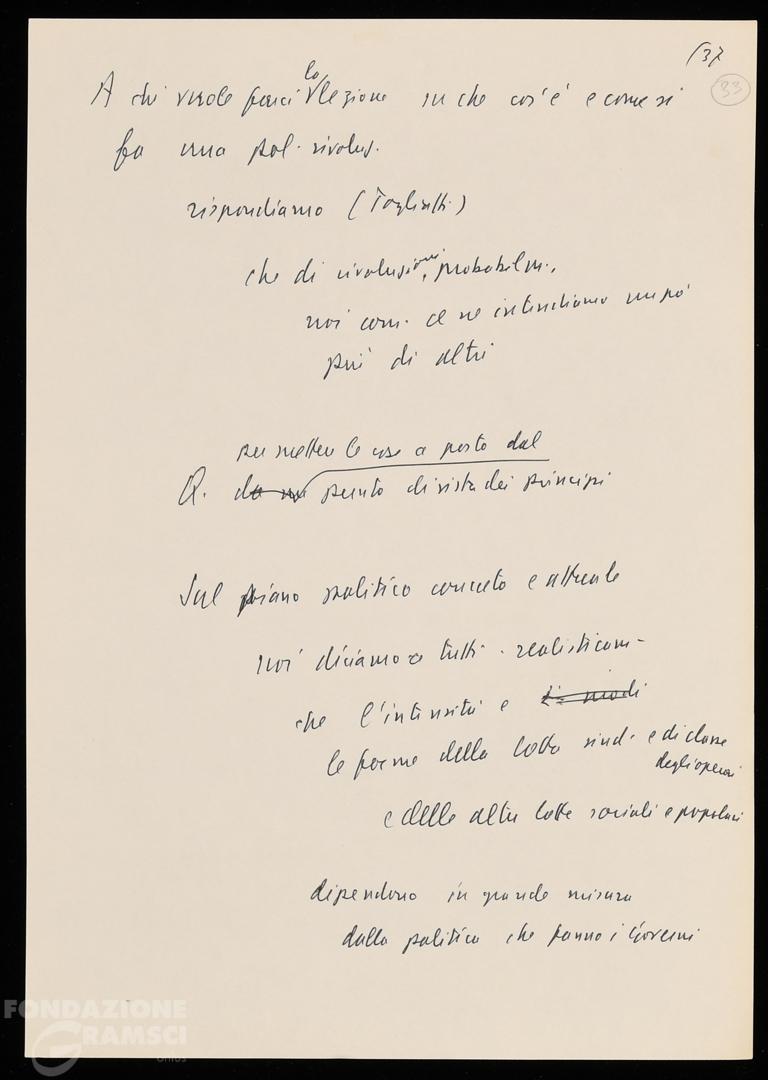 (37
33
A chi vuole farci la lezione su che cos'è e come si
fa una pol. rivoluz.
rispondiamo (Togliatti)
che di rivoluzioni, probabilm.,
noi com. ce ne intendiamo un po'
più di altri
per mettere le cose a posto dal
punto di vista dei principi
Sul piano politico concreto e attuale
noi diciamo a tutti - realisticam -
che l'intensità e i modi
le forme della lotta sind. e di classe
degli operai
e delle altre lotte sociali e popolari
dipendono in grande misura
dalla politica che fanno i Governi
FONDAZIONE
GRAMSCI
onlus